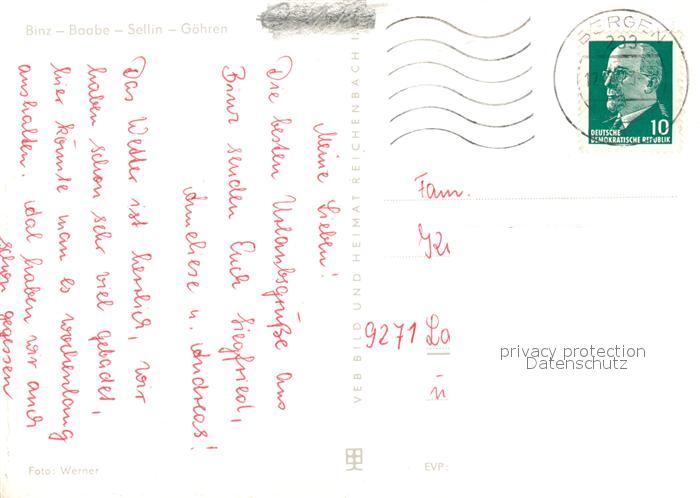 Binz – Baabe – Sellin – Göhren
Meine Lieben!
Die besten Urlaubsgrüße aus
Binz senden Euch Siegfried,
Anneliese u. Andreas!
Das Wetter ist herrlich, wir
haben schon sehr viel gebadet,
hier könnte man es wochenlang
aushalten. Aal haben wir auch
schon gegessen
Foto: Werner
VEB BILD UND HEIMAT REICHENBACH I.
EVP:
BERGEN
233
DEUTSCHE
DEMOKRATISCHE REPUBLIK
10
Fam.
Kr
9271 La
ü
privacy protection
Datenschutz